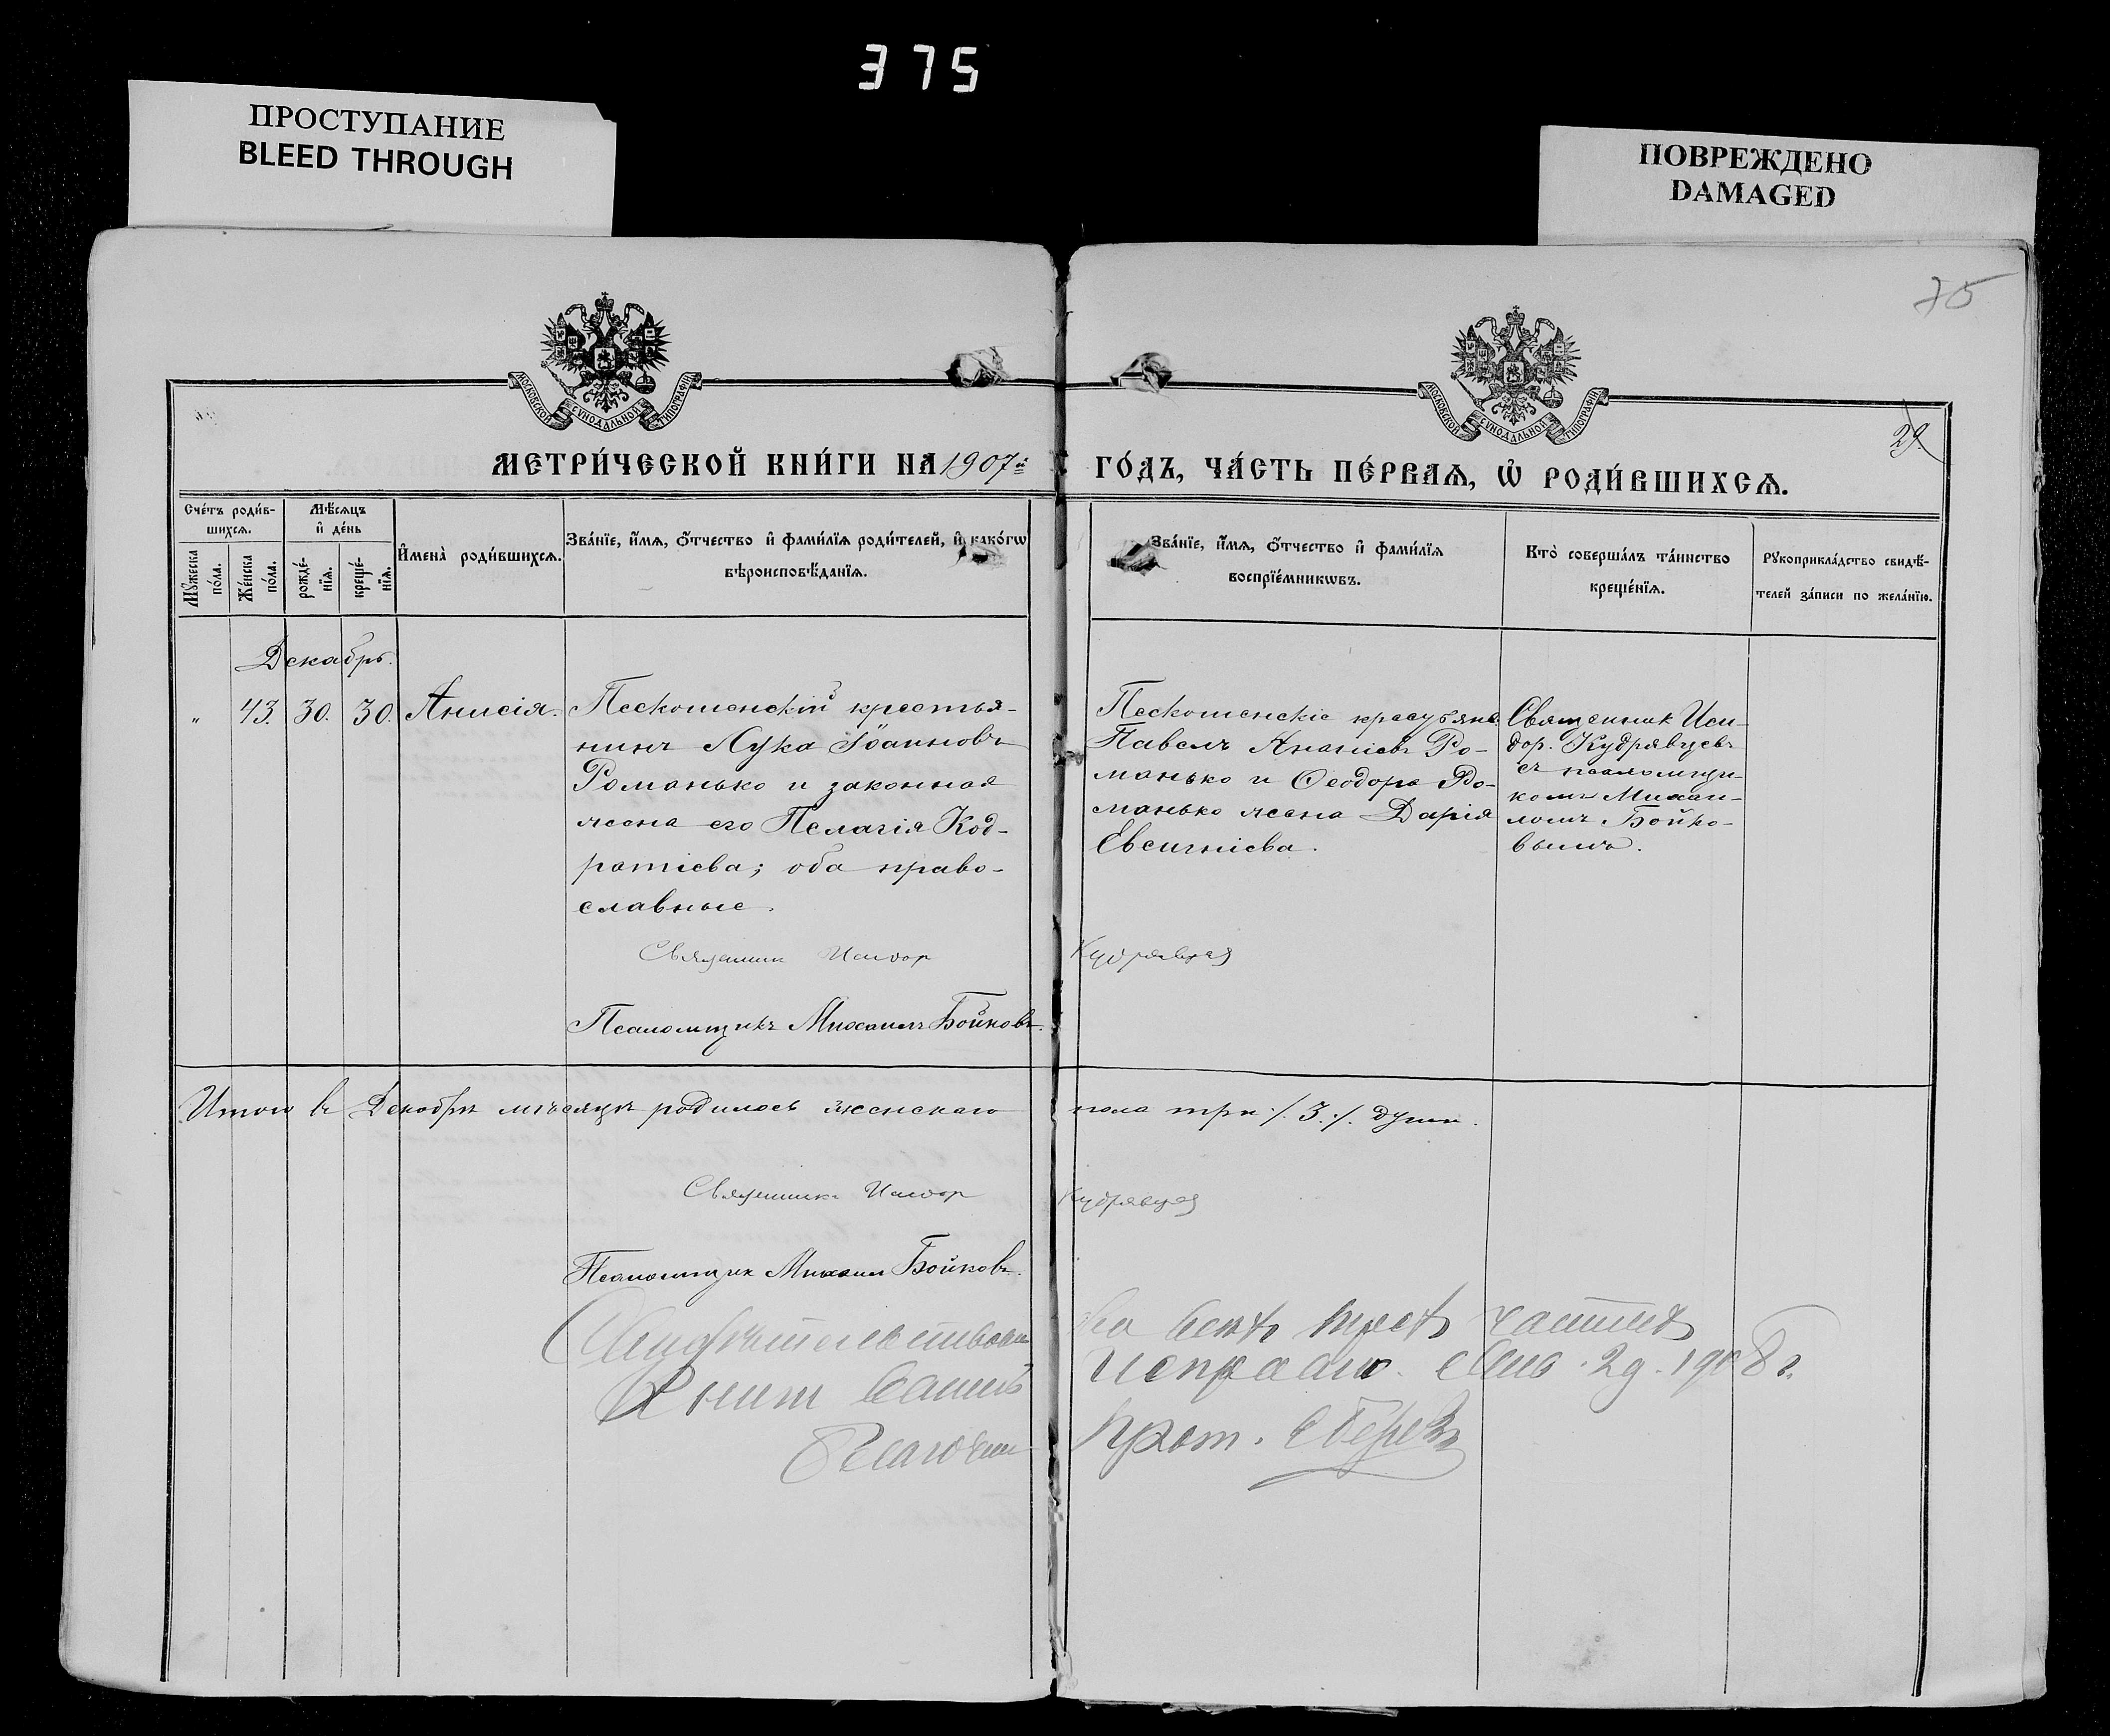 375
ПРОСТУПАНИЕ
BLEED THROUGH
ПОВРЕЖДЕНО
DAMAGED
75
МОСКОВСКОЙ СѴНОДАЛЬНОЙ ТИПОГРАФІИ
МОСКОВСКОЙ СѴНОДАЛЬНОЙ ТИПОГРАФІИ
29
МЕТРИ́ЧЕСКОЙ КНИ́ГИ НА 1907й ГО́ДЪ, ЧА́СТЬ ПЕ́РВАѦ, Ѽ РОДИ́ВШИХСѦ.
Сче́тъ роди́в-
шихсѧ.
Мꙋжеска по́ла.
Же́нска по́ла.
Мѣ́сѧцъ
и҆ де́нь
рожде́-
нїѧ.
креще́-
нїѧ.
И҆мена̀ роди́вшихсѧ.
Зва́нїе, и҆́мѧ, ѻ҆́тчество и҆ фами́лїѧ роди́телей, и҆ како́гѡ
вѣроисповѣ́данїѧ.
Зва́нїе, и҆́мѧ, ѻ҆́тчество и҆ фами́лїѧ
воспрїе́мникѡвъ.
Кто̀ соверша́лъ та́инство
креще́нїѧ.
Рꙋкоприкла́дство свидѣ́-
телей за́писи по жела́нїю.
Декабрь.
„ 43. 30. 30. Анисія.
Пескошенскій крестья-
нинъ Лука Іоанновъ
Романько и законная
жена его Пелагія Код-
ратіева; оба право-
славные.
Пескошенскіе крестьяне
Павелъ Ананіевъ Ро-
манько и Ѳеодора Ро-
манько жена Дарія
Евсигніева.
Священник Иси-
дор. Кудрявцевъ
съ псаломщи-
комъ Михаи-
ломъ Бойко-
вымъ.
Священник Исидор Кудрявцев
Псаломщикъ Михаилъ Бойковъ.
Итого въ Декабрѣ мѣсяцѣ родилось женскаго пола три /.3./. души.
Священникъ Исидор Кудрявцев
Псаломщик Михаил Бойковъ.
Свидѣтельствован
на всѣхъ трехъ частяхъ
исправно. 1908 г.
Благочин
Прот.